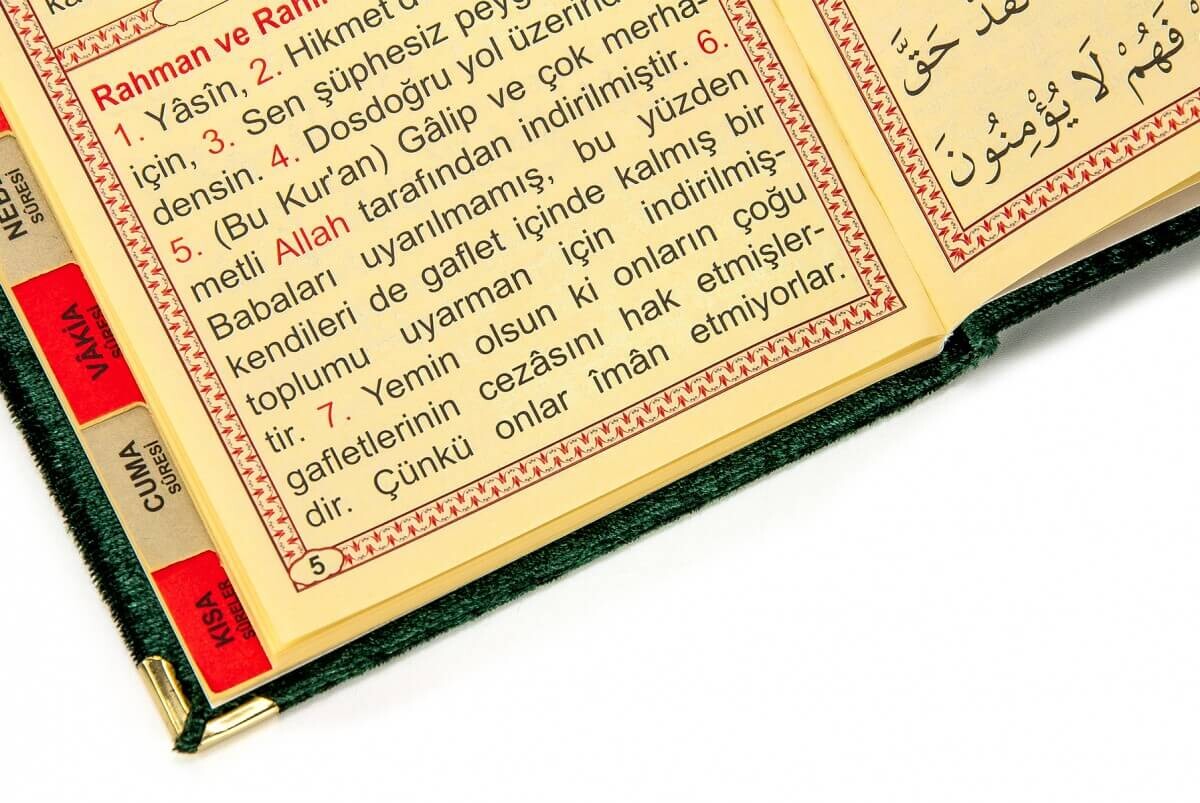 Rahman ve Rahi
1. Yâsîn, 2. Hikmet
için, 3. Sen şüphesiz peyg
densin. 4. Dosdoğru yol üzerind
5. (Bu Kur'an) Gâlip ve çok merha-
metli Allah tarafından indirilmiştir. 6.
Babaları uyarılmamış, bu yüzden
kendileri de gaflet içinde kalmış bir
toplumu uyarman için indirilmiş-
tir. 7. Yemin olsun ki onların çoğu
gafletlerinin cezâsını hak etmişler-
dir. Çünkü onlar îmân etmiyorlar.
5
SÛRESİ
VÂKIA
SÛRESİ
CUMA
SÛRESİ
KISA
SÛRELER
حَقَّ
فَهُمْ لَا يُؤْمِنُونَ